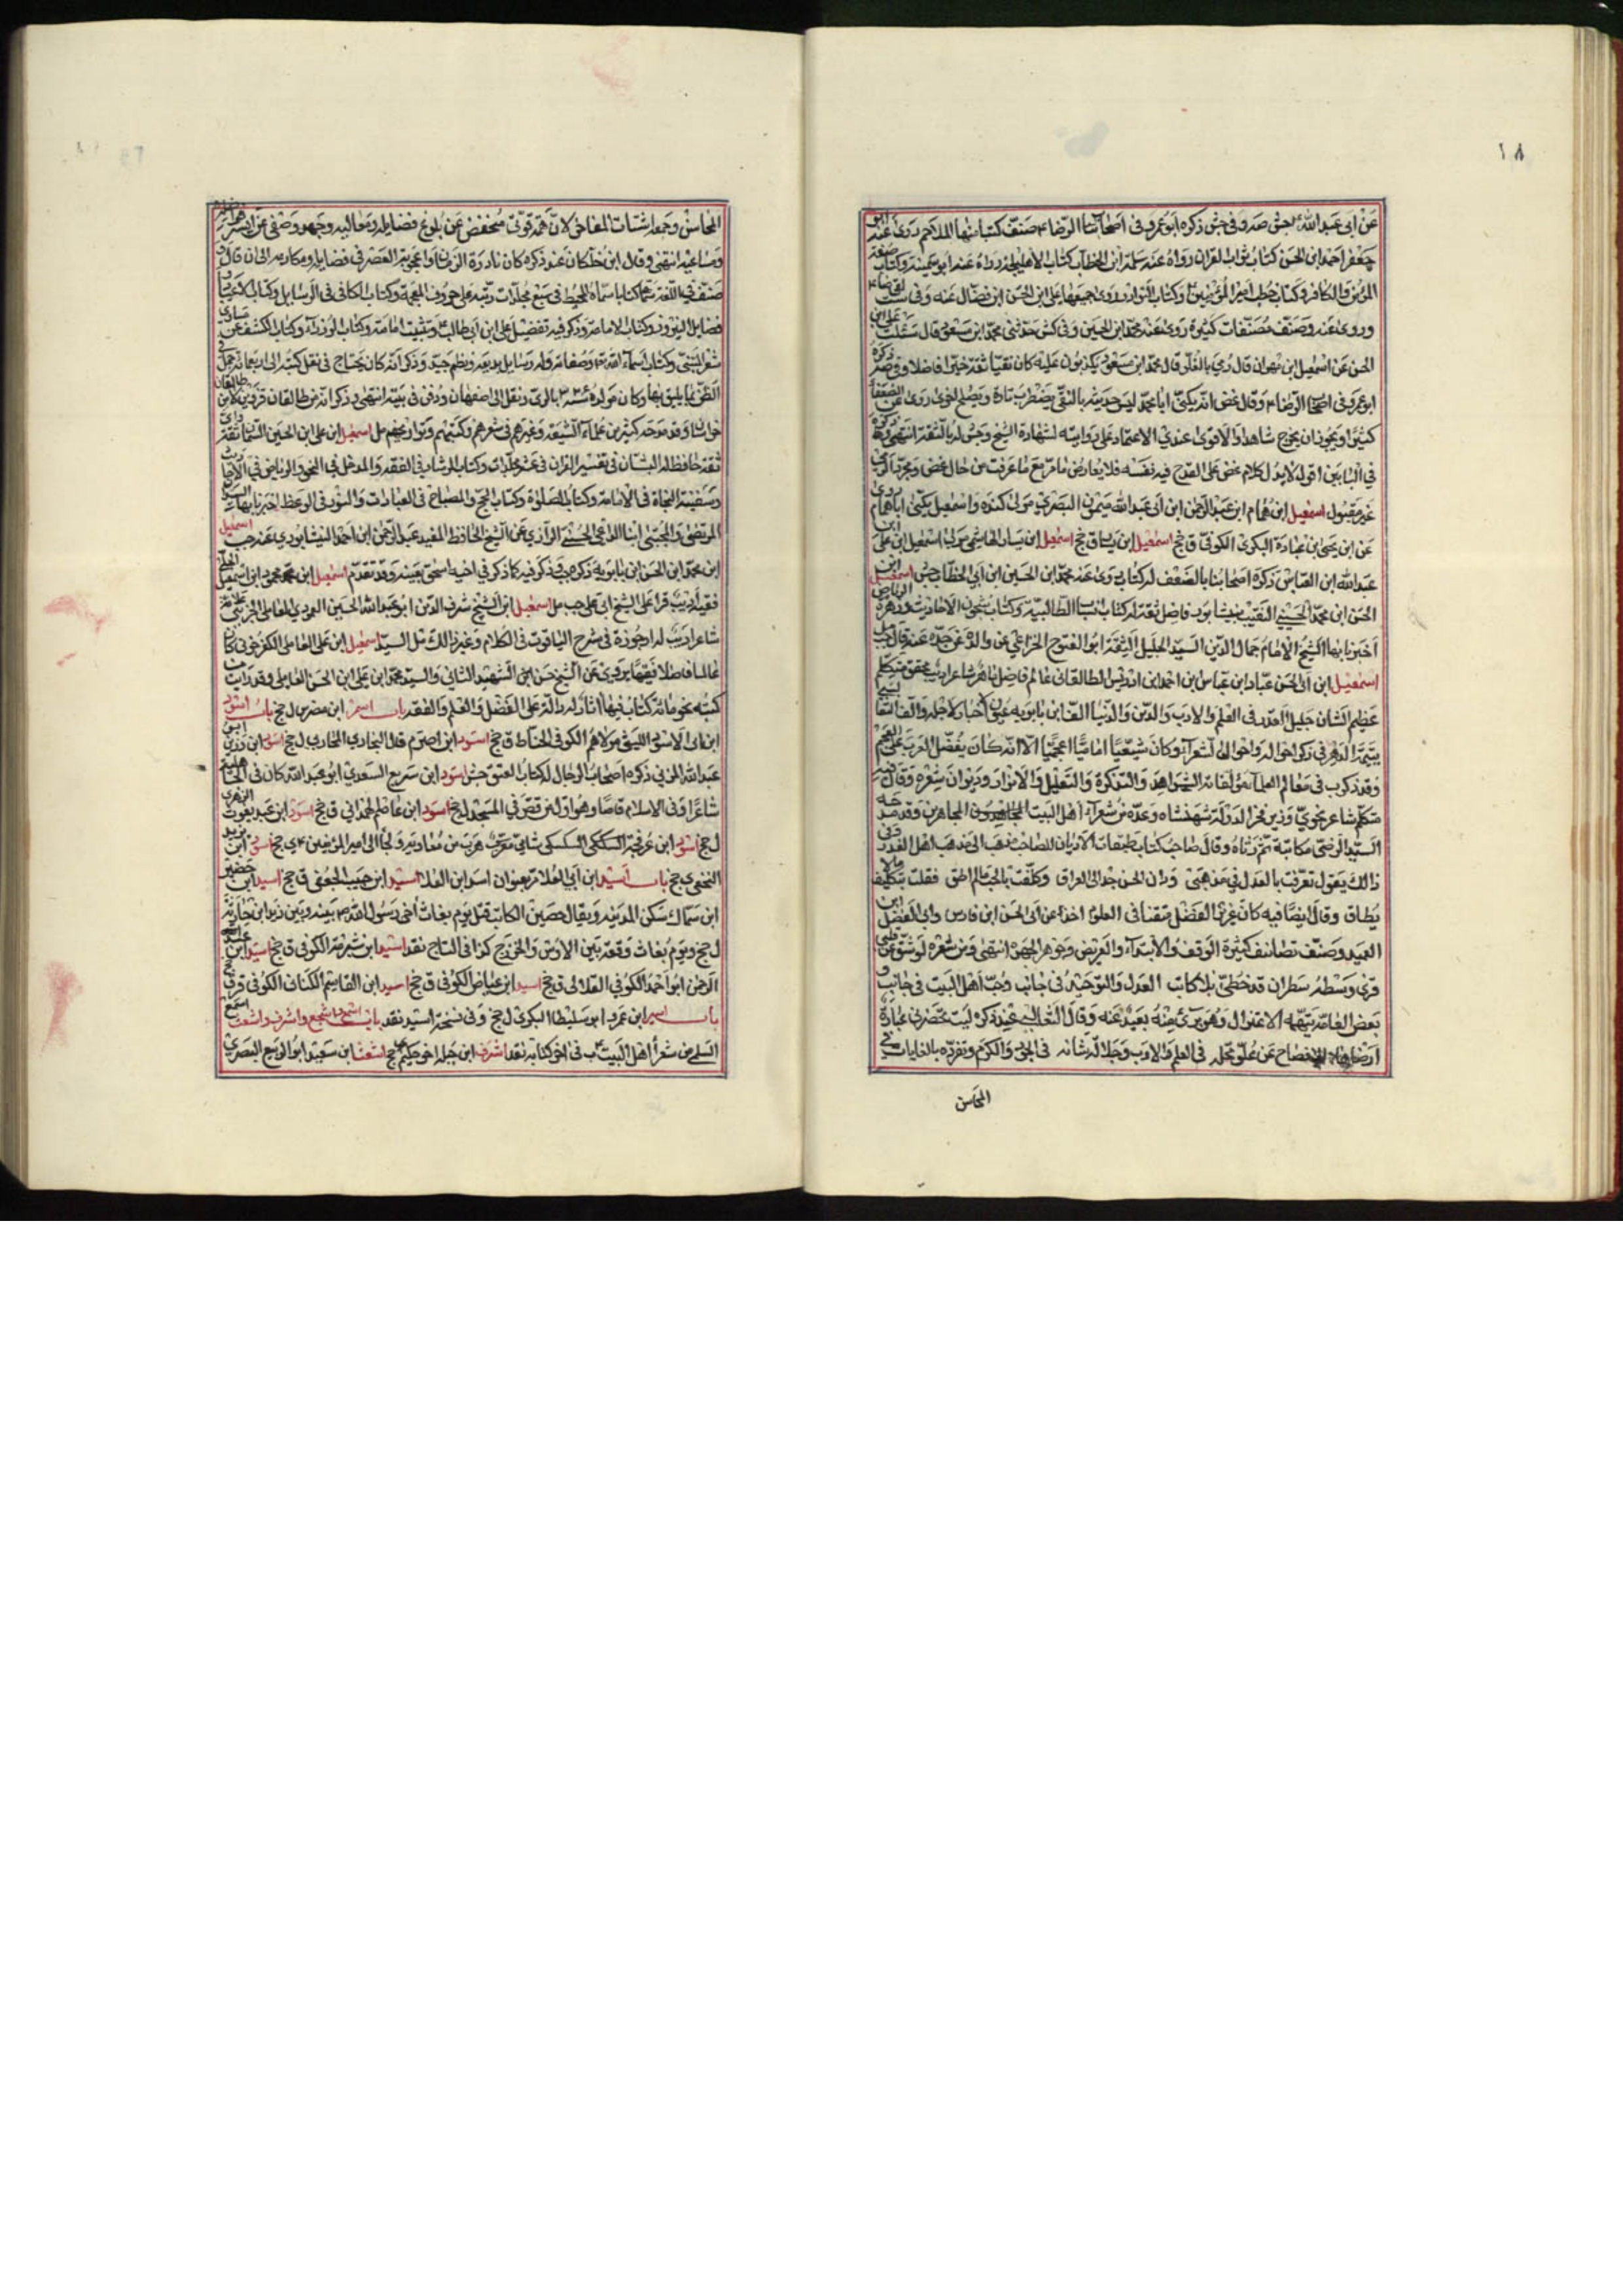 ١٨
عن ابى عبد الله جش صه وفى جش ذكره ابو عمرو فى اصحاب الرضا صنف كتبا منها الملاحم روى عنه
جعفر احمد ابن الحسن كتاب ثواب القران رواه عنه سلمة ابن الخطاب كتاب الاهليلجة رواه عنه ابو
المؤمن والكافر وكتاب خطب امير المؤمنين وكتاب النوادر روى جميعها على ابن الحسن ابن فضال عنه وفى ست
وروى عنه وصنف مصنفات كثيرة روى عنه محمد ابن الحسين وفى كش حدثنى محمد ابن مسعود قال سئلت على ابن
الحسن عن اسمعيل ابن مهران قال رمى بالغلو قال محمد ابن مسعود يكذبون عليه كان تقيا ثقة خيرا فاضلا وفى
ابو عمرو فى اصحاب الرضا وقال غض انه يكنى ابا محمد ليس حديثه بالنقى يضطرب تارة ويصلح اخرى روى عن الضعفا
كثيرا ويجوز ان يخرج شاهدا والاقوى عندى الاعتماد على روايته لشهادة الشيخ وجش له بالثقة انتهى
غير مقبول اسمعيل ابن همام ابن عبد الرحمن ابن ابى عبد الله ميمون البصرى مولى كندة واسمعيل يكنى ابا همام
عن ابن يحيى ابن عمارة البكرى الكوفى ق جخ اسمعيل ابن يسار الهاشمى مولى اسمعيل ابن على
عبد الله ابن العباس ذكره اصحابنا بالضعف له كتاب روى عنه محمد ابن الحسين ابن ابى الخطاب جش اسمعيل ابن
الحسن ابن محمد الحسينى النقيب بنيشابور فاضل ثقة له كتاب انساب الطالبية وكتاب شجون الاحاديث وزهرة الرياض
اخبرنا بها الشيخ الامام جمال الدين السيد الجليل الثقة ابو الفتوح الخزاعى عن والده عن جده عنه قال
اسمعيل ابن ابى الحسن عباد ابن عباس ابن احمد ابن ادريس الطالقانى عالم فاضل ماهر شاعر اديب محقق متكلم
عظيم الشان جليل القدر فى العلم والادب والدين والدنيا الف ابن بابويه عيون الاخبار لاجله والف الثعالبى
يتيمة الدهر فى ذكر احواله واحوال شعرائه وكان شيعيا اماميا اعجميا الا انه كان يفضل العرب على العجم
وقد ذكر ب فى معالم العلماء مؤلفاته الشواهد والتذكرة والتعليل والانوار وديوان شعره وقال
متكلم شاعر نحوى وزير فخر الدولة شهنشاه وعده من شعراء اهل البيت المجاهرين وقد مدحه
السيد الرضى مكاتبة ثم رثاه وقال صاحب كتاب طبقات الاديان للصاحب ذهب الى مذهب اهل العدل وفى
ذالك يقول تعرفت بالعدل فى مذهبى ودان الحسن جدالى العراق وكلفت بالحب ما لم اطق فقلت بتكليف ما لا
يطاق وقال ايضا فيه كان غزير الفضل متفننا فى العلوم اخذ عن ابى الحسن ابن فارس وابى الفضل ابن
العميد وصنف تصانيف كثيرة الوقف والابتداء والعروض وجوهر الجمهرة انتهى ومن شعره لو شق عن قلبى
يرى وسطه سطران قد خطا بلا كاتب العدل والتوحيد فى جانب وحب اهل البيت فى جانب
بعض العامة يتهمه بالاعتزال وهو برئ منه بعيد عنه وقال الثعالبى عند ذكره ليست تحضرنى عبارة
ارضاها للافصاح عن علو محله فى العلم والادب وجلالة شانه فى الجود والكرم وتفرده بالغايات فى
المحاسن
المحاسن وجمعه اشتات المفاخر لان همة قولى منخفض عن بلوغ فضايله ومعاليه وجهد وصفى عن ايسر
ومساعيه انتهى وقال ابن خلكان عند ذكره كان نادرة الزمان واعجوبة العصر فى فضايله ومكارمه الى ان قال
صنف فى اللغة كتابا سماه المحيط فى سبع مجلدات رتبه على حروف المعجمة وكتاب الكافى فى الرسايل وكتاب الاعياد
فضايل النيروز وكتاب الامامة وذكر فيه تفضيل على ابن ابى طالب وتثبيت امامته وكتاب الوزراء وكتاب الكشف عن مساوى
شعر المتنبى وكتاب اسماء الله وصفاته وله رسايل بديعة ونظم جيد وذكر انه كان يحتاج فى نقل كتبه الى
وكان مولده بالرى ونقل الى اصفهان ودفن فى بيته انتهى وذكر انه من طالقان قزوين لا من طالقان
خراسان وقد مدحه كثير من علماء الشيعة وغيرهم فى شعرهم وكتبهم وتواريخهم مل اسمعيل ابن على ابن الحسين السمان ثقة
ثقة حافظ له البستان فى تفسير القران فى عشر مجلدات وكتاب الرشاد فى الفقه والمدخل فى النحو والرياض فى الاحاديث
وسفينة النجاة فى الامامة وكتاب الصلوة وكتاب الحج والمصباح فى العبادات والنور فى الوعظ اخبرنا بها السيدان
المرتضى والمجتبى ابنا الداعى الحسينى الرازى عن الشيخ الحافظ المفيد عبد الرحمن ابن احمد النيشابورى عنه جب اسمعيل
ابن محمد ابن الحسن ابن بابويه ذكره جب وذكر فيه كما ذكر فى اخيه اسحق بعينه وقد تقدم اسمعيل ابن محمود ابن اسمعيل
فقيه اديب قرا على الشيخ ابى على جب مل اسمعيل ابن الشيخ شرف الدين ابو عبد الله الحسين العودى العاملى الجزينى
شاعرا اديبا له ارجوزة فى شرح الياقوت فى الكلام وغير ذالك مل السيد اسمعيل ابن على العاملى الكفرحونى كان
عالما فاضلا فقيها يروى عن الشيخ حسن ابن الشهيد الثانى والسيد محمد ابن على ابن الحسن العاملى وقد رايت من
كتبه نحو مائة كتاب فيها اثار له دالة على الفضل والعلم والفقه باب اسمر ابن مضرس ل جخ باب اسود
ابن ابى الاسود الليثى مولاهم الكوفى الحناط ق جخ اسود ابن اصرم ل جخ اسود ابن رزين
عبد الله المزنى ذكره اصحاب الرجال له كتاب العتق جش اسود ابن سريع السعدى ابو عبد الله كان فى الجاهلية
شاعرا وفى الاسلام قاصا وهو اول من قص فى المسجد ل جخ اسود ابن عاصم الهمدانى ق جخ اسود ابن عبد يغوث الزهرى
ل جخ اسود ابن عرفجة السكسكى شامى هرب من معاوية ولجأ الى امير المؤمنين ى جخ اسود ابن يزيد
النخعى ى جخ باب اسيد ابن ابى العلا اسيد ابن حبيب الجعفى ق جخ اسيد ابن حضير
ابن سماك سكن المدينة ويقال حصين الكاتب قتل يوم بغاث اخى رسول الله بينه وبين زيد ابن حارثة
ل جخ ويوم بغاث وقعة بين الاوس والخزرج كذا فى التاج نقد اسيد ابن شبرمة الكوفى ق جخ اسيد ابن عبد
الرحمن ابو احمد الكوفى ق جخ اسيد ابن عياض الكوفى ق جخ اسيد ابن القاسم الكنانى الكوفى ق
باب اسير ابن عمرو ابو سليط البكرى ل جخ وفى نسخة اسيد نقد باب اشجع واشرف واشعث
السلمى من شعراء اهل البيت ب فى اخر كتابه نقد اشرف ابن جبلة اخو حكيم جخ اشعث ابن سعيد ابو الربيع البصرى